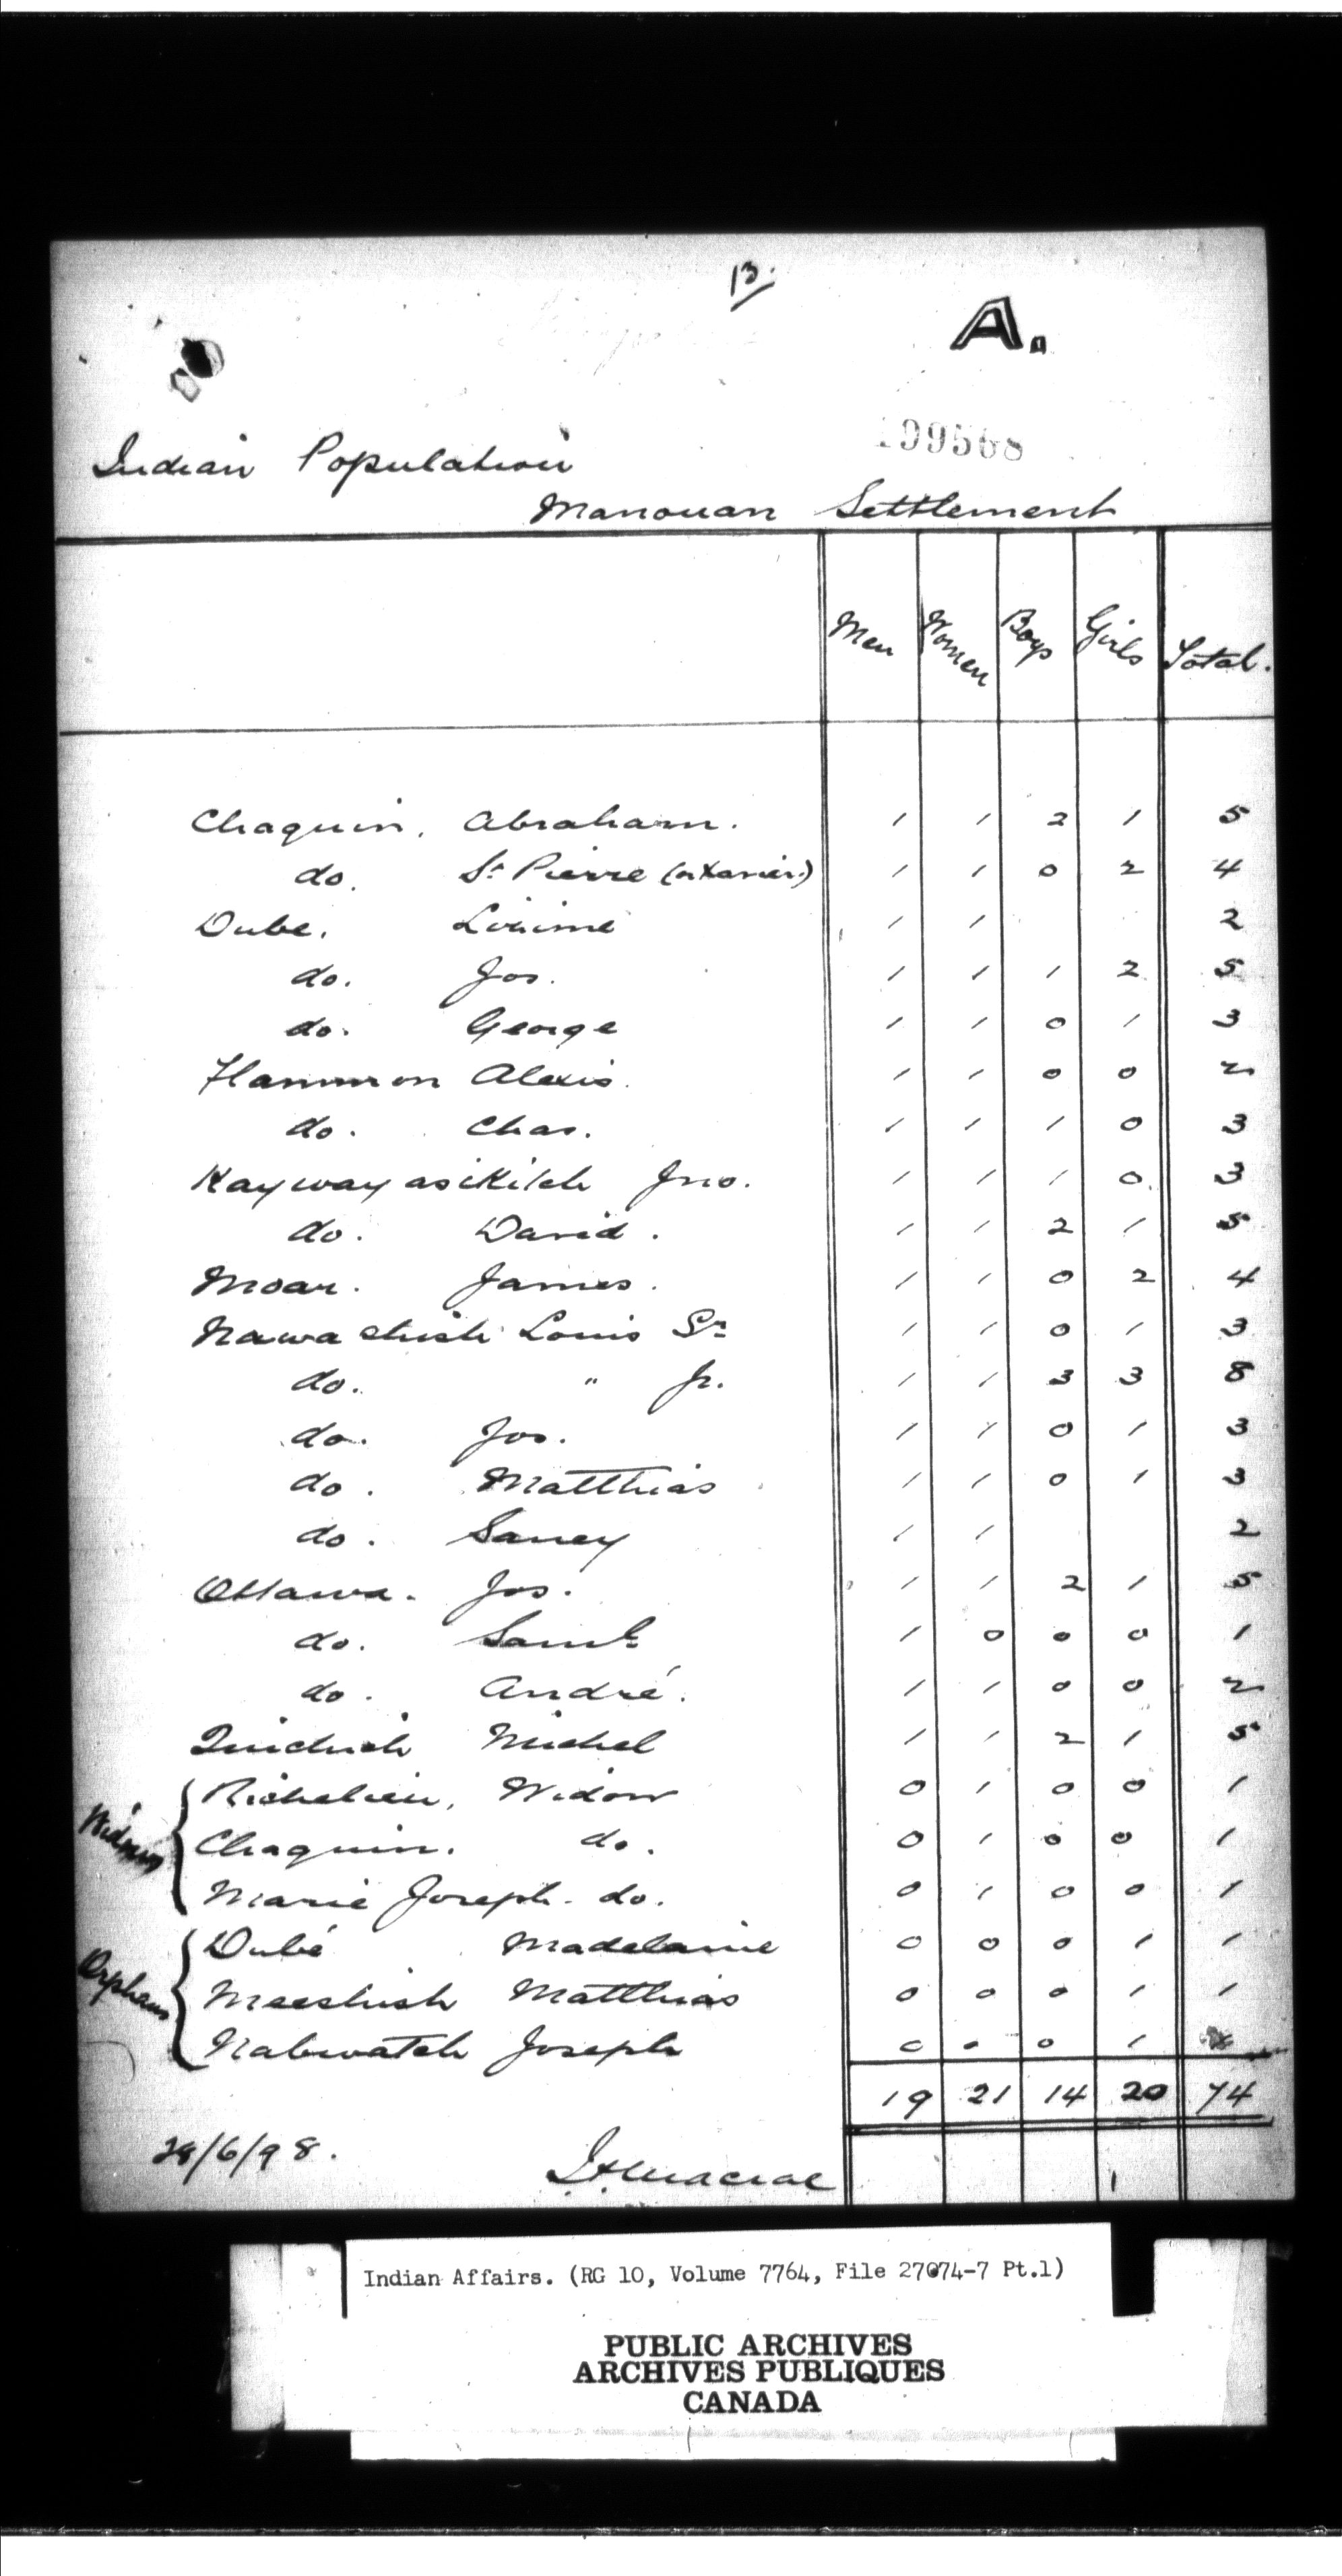 13.
A.
199568
Indian Population
Manouan Settlement
Men Women Boys Girls Total.
Chaquin, Abraham. 1 1 2 1 5
do. St Pierre (or Xavier) 1 1 0 2 4
Dube. 1 1 2
do. Jos. 1 1 1 2 5
do. George 1 1 0 1 3
Flammon Alexis. 1 1 0 0 2
do. Chas. 1 1 1 0 3
Kaywayasikitch Jno. 1 1 1 0 3
do. David. 1 1 2 1 5
Moar. James. 1 1 0 2 4
Nawashish Louis Sr 1 1 0 1 3
do. " Jr. 1 1 3 3 8
do. Jos. 1 1 0 1 3
do. Matthias 1 1 0 1 3
do. 1 1 2
Ottawa. Jos. 1 1 2 1 5
do. Saml 1 0 0 0 1
do. André. 1 1 0 0 2
Quichish Michel 1 1 2 1 5
Widows
Richelieu, Widow 0 1 0 0 1
Chaquin. do. 0 1 0 0 1
Marie Joseph. do. 0 1 0 0 1
Orphans
Dubé Madelaine 0 0 0 1 1
Meeshish Matthias 0 0 0 1 1
Nabwatch Joseph 0 0 0 1
19 21 14 20 74
28/6/98.
Macrae
Indian Affairs. (RG 10, Volume 7764, File 27074-7 Pt.1)
PUBLIC ARCHIVES
ARCHIVES PUBLIQUES
CANADA